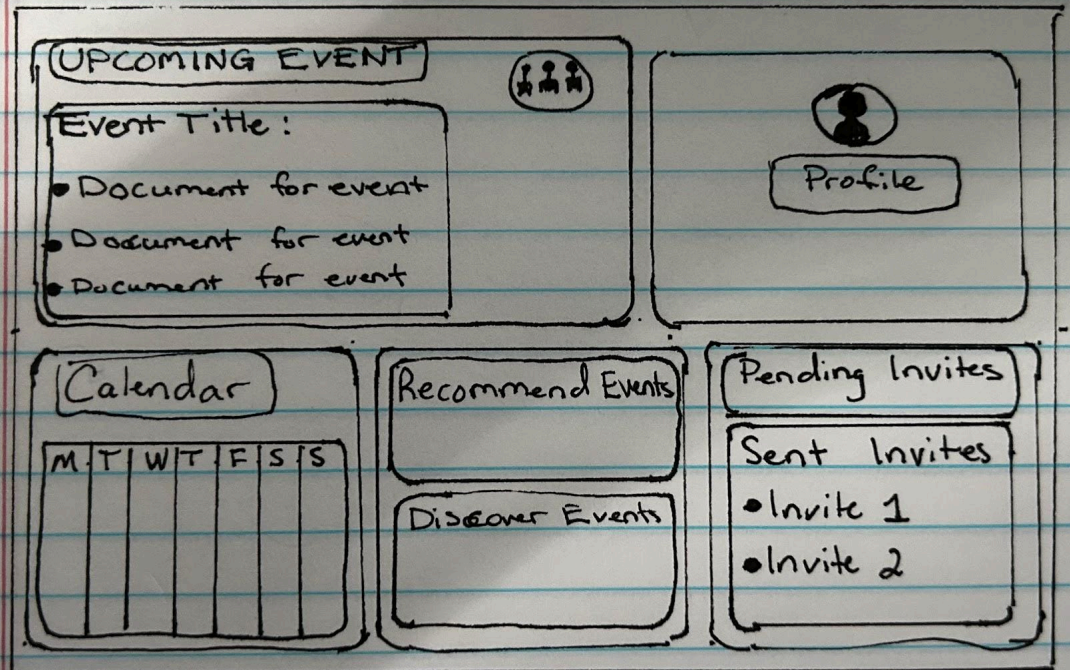 UPCOMING EVENT
Event Title:
• Document for event
• Document for event
• Document for event
Profile
Calendar
M T W T F S S
Recommend Events
Discover Events
Pending Invites
Sent Invites
• Invite 1
• Invite 2